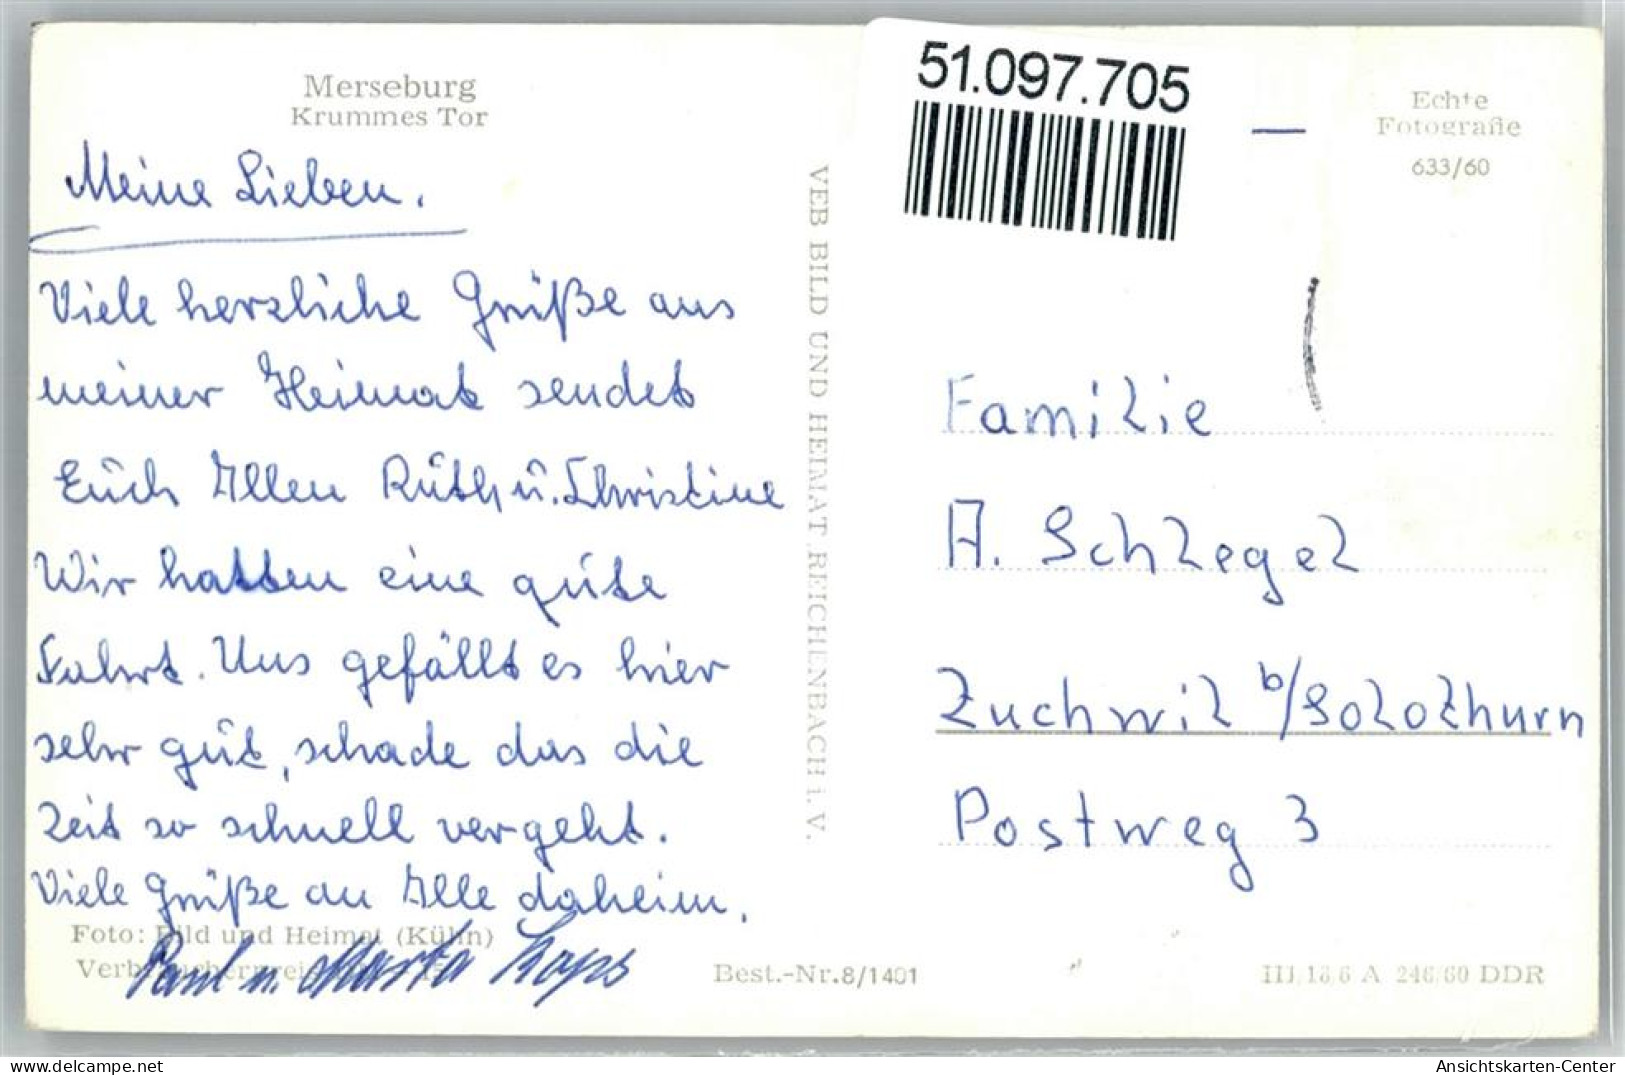 Merseburg
Krummes Tor
Meine Lieben.
Viele herzliche Grüße aus
meiner Heimat sendet
Euch Allen Ruth u. Christine
Wir hatten eine gute
Fahrt. Uns gefällt es hier
sehr gut, schade das die
Zeit so schnell vergeht.
Viele Grüße an Alle daheim.
Paul u. Marta
Foto: Bild und Heimat (Kühn)
Best.-Nr.8/1401
VEB BILD UND HEIMAT REICHENBACH i. V.
51.097.705
Echte
Fotografie
633/60
Familie
A. Schlegel
Zuchwil b/Solothurn
Postweg 3
III/18/6 A 246/60 DDR
Ansichtskarten-Center
www.delcampe.net